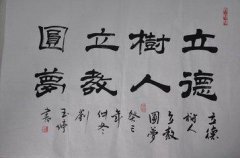 立德
樹人
立教
圓夢
立德
樹人
立教
圓夢
癸巳
年
仲冬
劉
玉坤
書